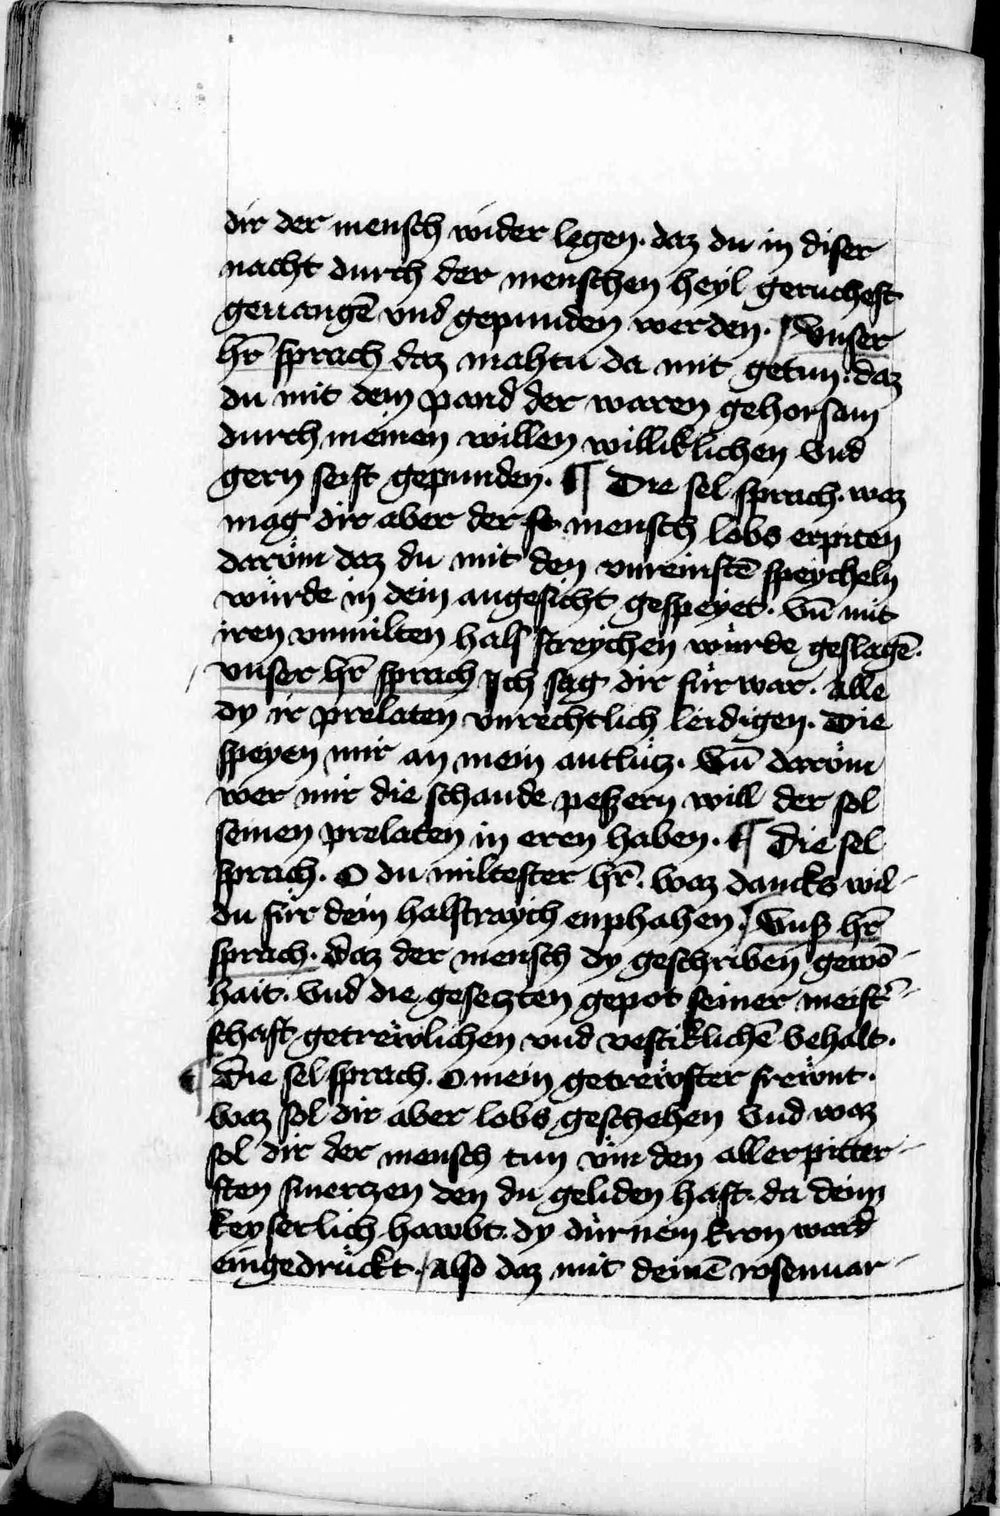 dir der mensch wider legen. daz du in diser
nacht durch der menschen heyl geruchest
geuangē vnd gepunden werden. Vnser
hr̄ sprach daz mahtu da mit getun. daz
du mit dem pand der waren gehorsam
durch meinen willen williklichen vnd
gern seist gepunden. ¶ Die sel sprach. waz
mag dir aber der mensch lobs erpiten
daröm daz du mit den vnreinstē speycheln
würde in dein angesicht gespeyet. vn̄ mit
iren vnmilten hals streychen würde geslagē.
vnser hr̄ sprach Ich sag dir für war. Alle
dy ir prelaten vnrechtlich leidigen. Die
speyen mir an mein antlütz. Vn̄ daröm
wer mir die schande peßern will der sol
seinen prelaten in eren haben. ¶ Die sel
sprach. O du miltester hr̄. waz dancks wil-
du für dein halstraych enphahen. Vnß hr̄
sprach. Daz der mensch dy geschriben gewō-
hait. vnd die gesetzten gepot seiner meist̄-
schaft getrewlichen vnd vestiklichē behalt.
Die sel sprach. O mein getrewster frewnt.
waz sol dir aber lobs geschehen vnd waz
sol dir der mensch tun vm den allerpitter-
sten smerczen den du geliden hast. da deim
keyserlich hawbt. dy dürnein kron ward
eingedrückt. Also daz mit deinē rosenuar-